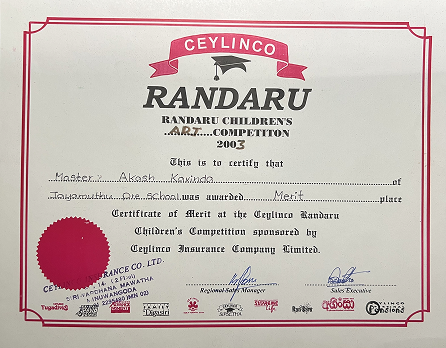 CEYLINCO
RANDARU
RANDARU CHILDREN'S
ART COMPETITON
2003
This is to certify that
Master : Akash Kavinda of
Jayamuthu Pre School was awarded Merit place
Certificate of Merit at the Ceylinco Randaru
Children's Competition sponsored by
Ceylinco Insurance Company Limited.
INSURANCE CO. LTD.
MAWATHA
MINUWANGODA
Regional Sales Manager
Sales Executive